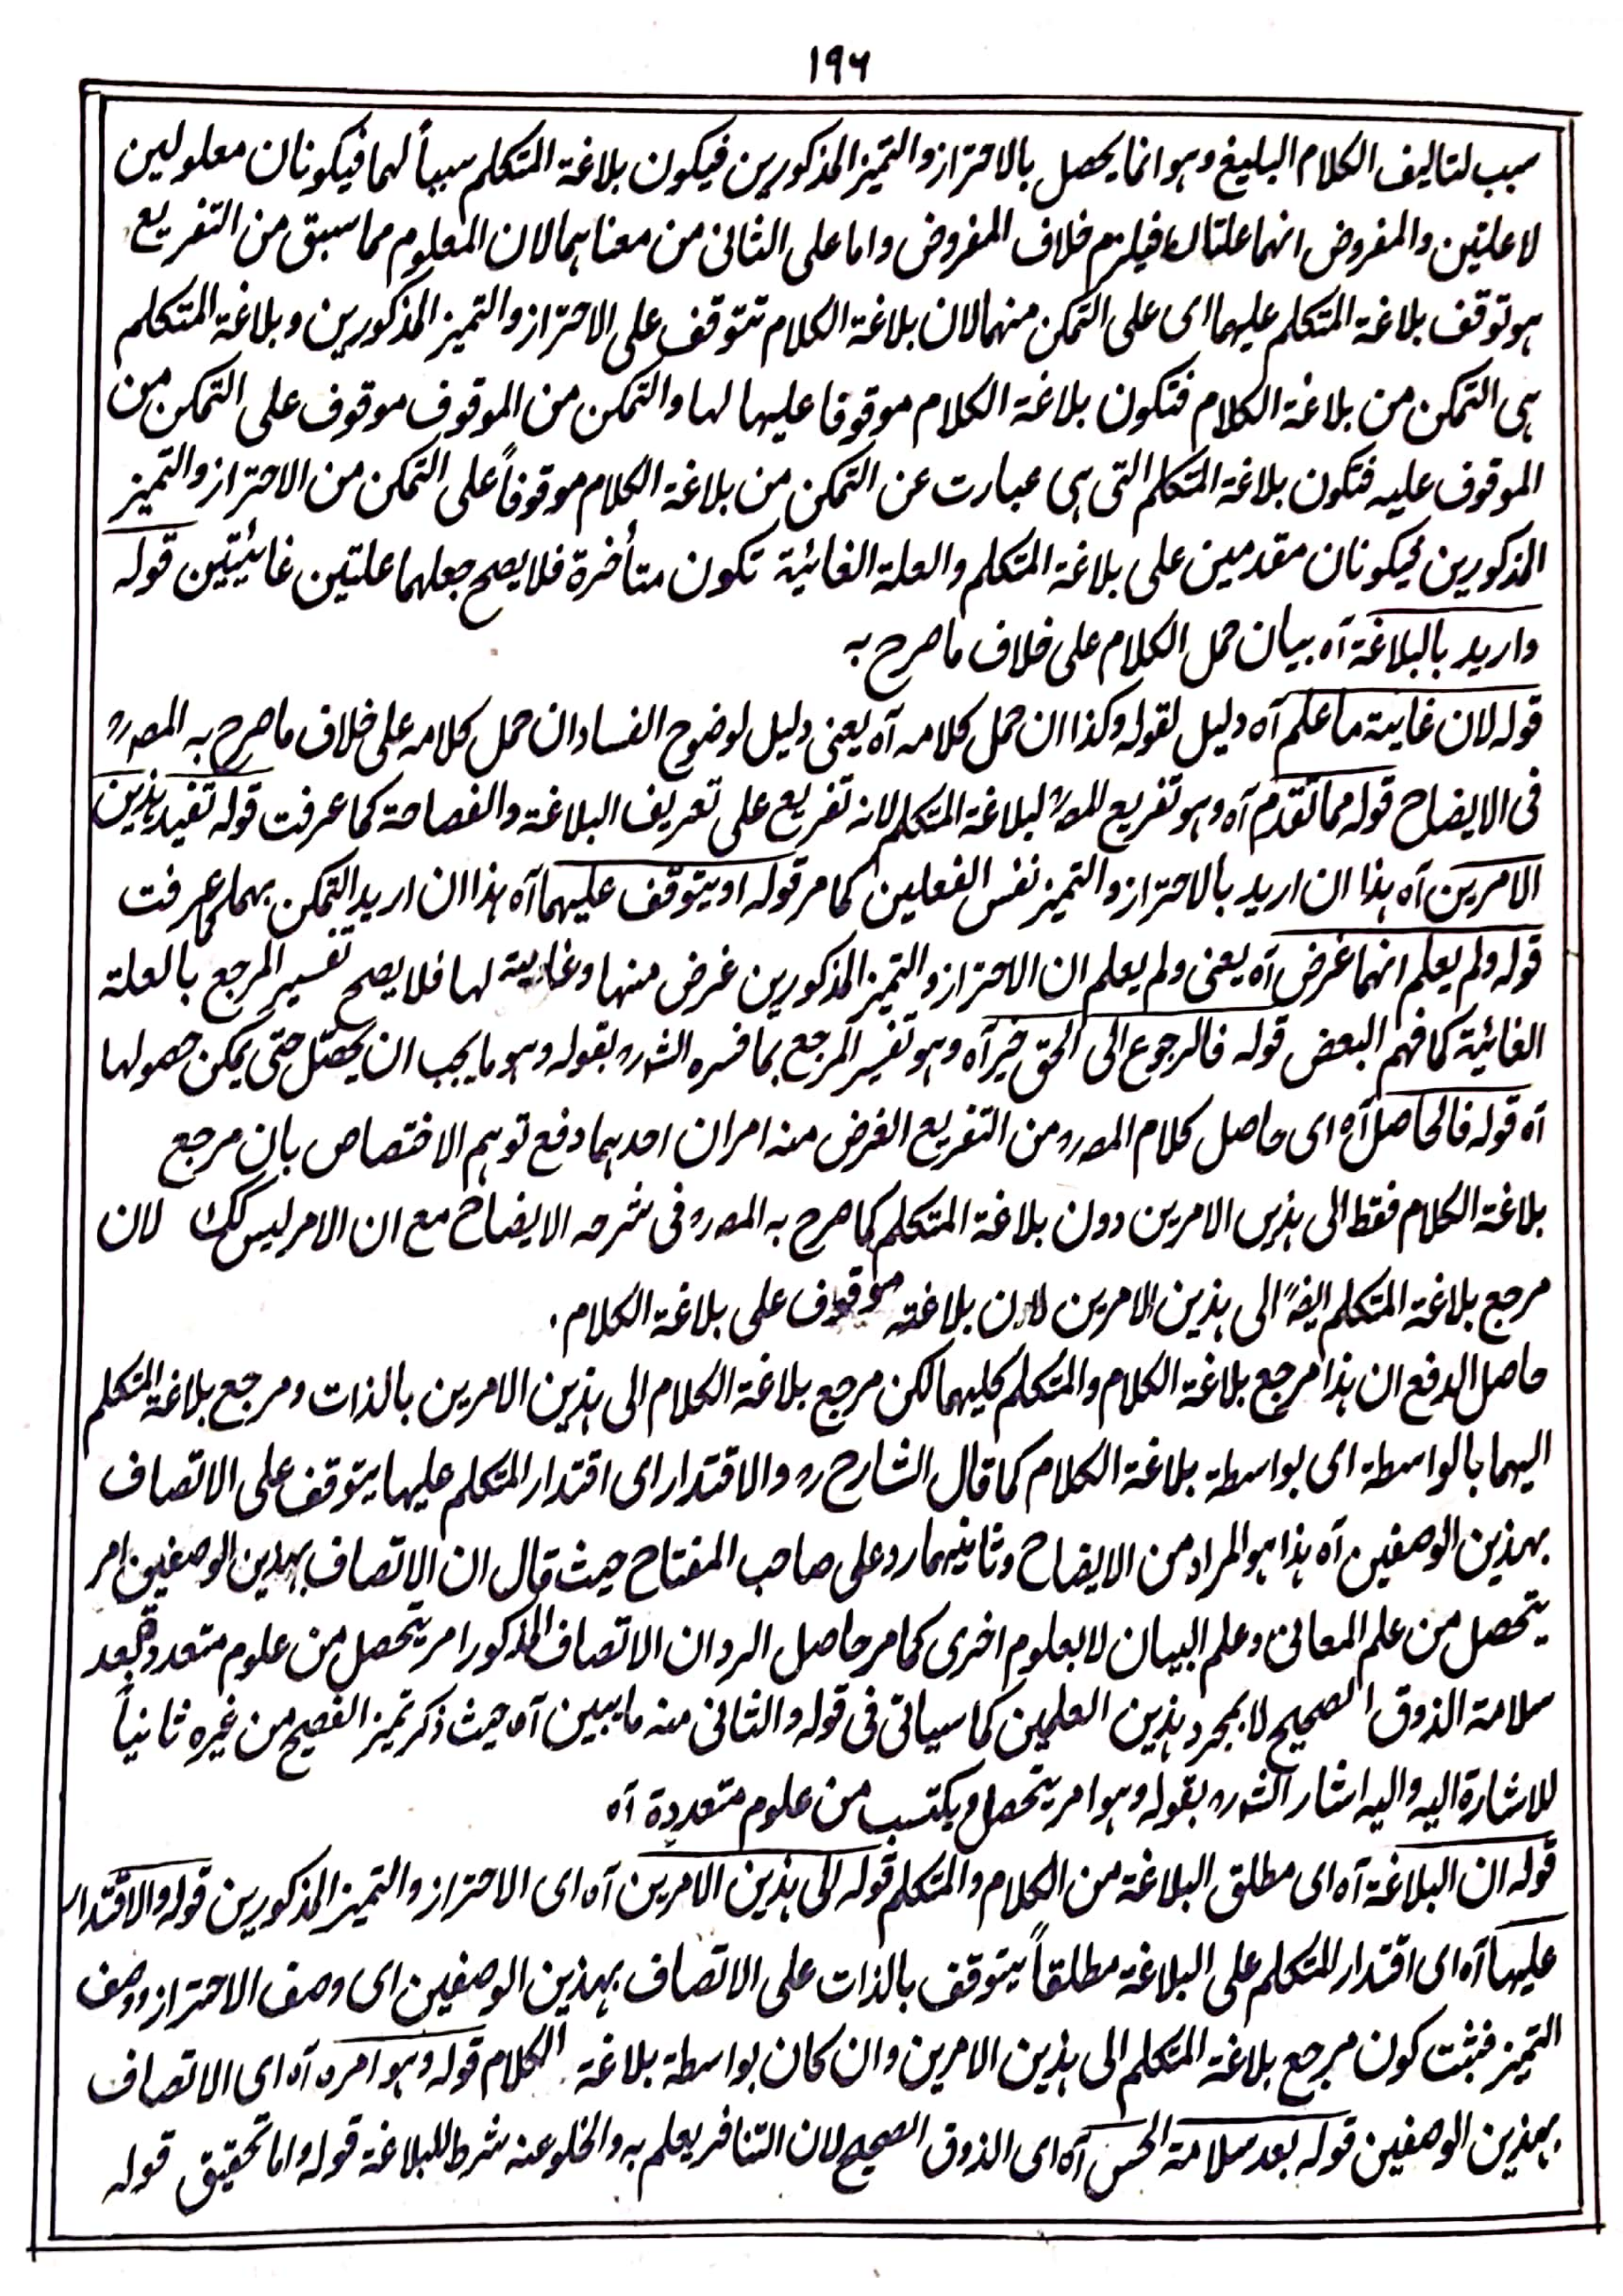 ١٩٦
سبب لتاليف الكلام البليغ وہو انما يحصل بالاحتراز والتميز المذكورين فيكون بلاغة المتكلم سبباً لہما فيكونان معلولين
لا علتين والمفروض انہما علتان فيلزم خلاف المفروض واما على الثانى من معناہما لان المعلوم مما سبق من التفريع
ہو توقف بلاغة المتكلم عليہما اى على التمكن منہما لان بلاغة الكلام تتوقف على الاحتراز والتميز المذكورين وبلاغة المتكلم
ہى التمكن من بلاغة الكلام فتكون بلاغة الكلام موقوفا عليہا لہا والتمكن من الموقوف موقوف على التمكن من
الموقوف عليہ فتكون بلاغة المتكلم التى ہى عبارت عن التمكن من بلاغة الكلام موقوفاً على التمكن من الاحتراز والتميز
المذكورين فيكونان مقدمين على بلاغة المتكلم والعلة الغائية تكون متأخرة فلا يصح جعلہما علتين غائيتين قولہ
واريد بالبلاغة آہ بيان حمل الكلام على خلاف ما صرح بہ
قولہ لان غايية ما علم آہ دليل لقولہ وكذا ان حمل كلامہ آہ يعنى دليل لوضوح الفساد ان حمل كلامہ على خلاف ما صرح بہ المصؒ
فى الايضاح قولہ مما تقدم آہ وہو تفريع المصؒ لبلاغة المتكلم لانہ تفريع على تعريف البلاغة والفصاحة كما عرفت قولہ تفيد ہذين
الامرين آہ ہذا ان اريد بالاحتراز والتميز نفس الفعلين كما مر قولہ او يتوقف عليہما آہ ہذا ان اريد التمكن بہما كما عرفت
قولہ ولم يعلم انہما غرض آہ يعنى ولم يعلم ان الاحتراز والتميز المذكورين غرض منہا وغايية لہا فلا يصح تفسير المرجع بالعلة
الغائية كما فہم البعض قولہ فالرجوع الى الحق خير آہ وہو تفسير المرجع بما فسرہ الشؒ بقولہ وہو ما يجب ان يحصل حتى يمكن حصولہا
آہ قولہ فالحاصل آہ اى حاصل كلام المصؒ من التفريع الغرض منہ امران احدہما دفع توہم الاختصاص بان مرجع
بلاغة الكلام فقط الى ہذين الامرين دون بلاغة المتكلم كما صرح بہ المصؒ فى شرحہ الايضاح مع ان الامر ليس كك لان
مرجع بلاغة المتكلم ايضاً الى ہذين الامرين لان بلاغتہ موقوف على بلاغة الكلام.
حاصل الدفع ان ہذا مرجع بلاغة الكلام والمتكلم كليہما لكن مرجع بلاغة الكلام الى ہذين الامرين بالذات ومرجع بلاغة المتكلم
اليہما بالواسطة اى بواسطة بلاغة الكلام كما قال الشارحؒ والاقتدار اى اقتدار المتكلم عليہا يتوقف على الاتصاف
بہذين الوصفين آہ ہذا ہو المراد من الايضاح وثانيہما رد على صاحب المفتاح حيث قال ان الاتصاف بہذين الوصفين امر
يتحصل من علم المعانى وعلم البيان لا بعلوم اخرى كما مر حاصل الرد ان الاتصاف المذكور امر يتحصل من علوم متعددة بعد
سلامة الذوق الصحيح لا بمجرد ہذين العلمين كما سياتى فى قولہ والثانى منہ ما يبين آہ حيث ذكر تميز الفصيح من غيرہ ثانياً
للاشارة اليہ واليہ اشار الشؒ بقولہ وہو امر يتحصل ويكتسب من علوم متعددة آہ
قولہ ان البلاغة آہ اى مطلق البلاغة من الكلام والمتكلم قولہ الى ہذين الامرين آہ اى الاحتراز والتميز المذكورين قولہ والاقتدار
عليہا آہ اى اقتدار المتكلم على البلاغة مطلقاً يتوقف بالذات على الاتصاف بہذين الوصفين اى وصف الاحتراز ووصف
التميز فثبت كون مرجع بلاغة المتكلم الى ہذين الامرين وان كان بواسطة بلاغة الكلام قولہ وہو امر آہ اى الاتصاف
بہذين الوصفين قولہ بعد سلامة الحس آہ اى الذوق الصحيح لان التنافر يعلم بہ والخلو عنہ شرط للبلاغة قولہ واما تحقيق قولہ